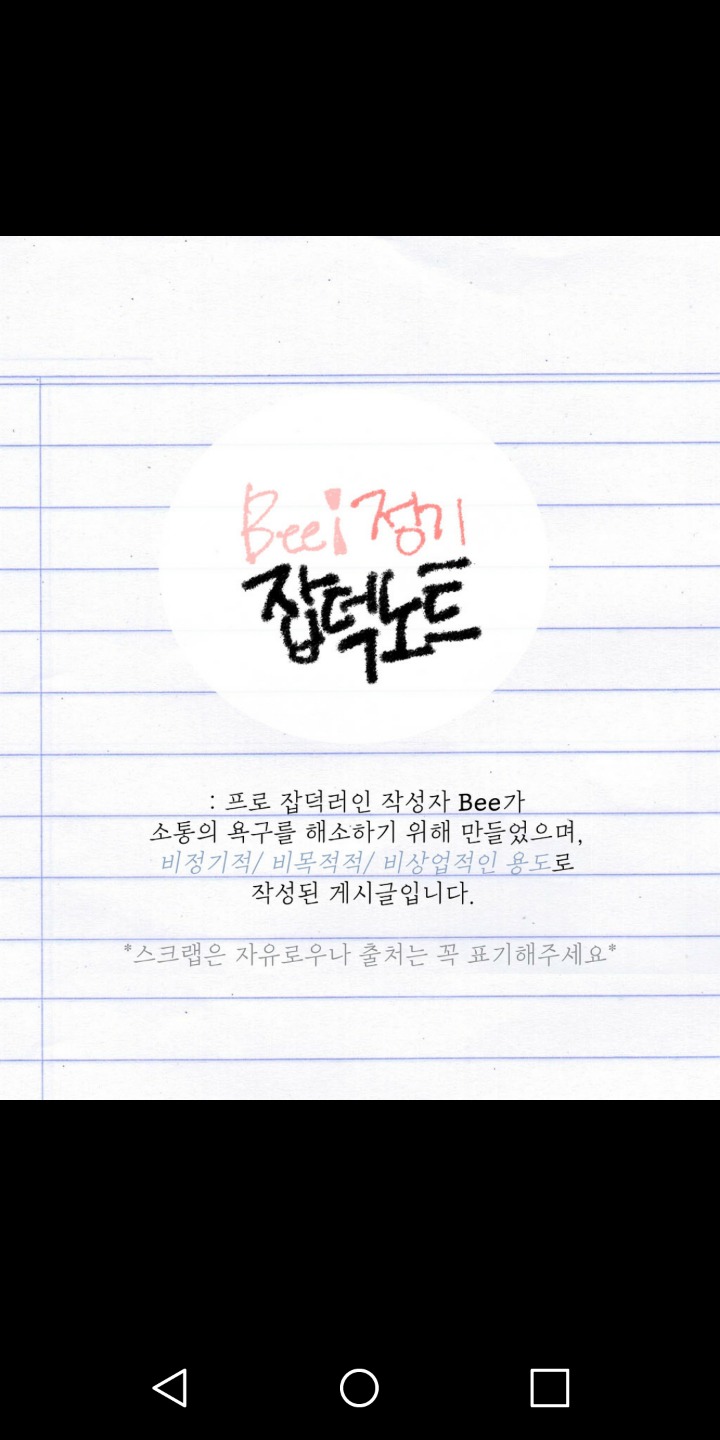 Bee! 정기
잡덕노트
: 프로 잡덕러인 작성자 Bee가
소통의 욕구를 해소하기 위해 만들었으며,
비정기적/ 비목적적/ 비상업적인 용도로
작성된 게시글입니다.
*스크랩은 자유로우나 출처는 꼭 표기해주세요*